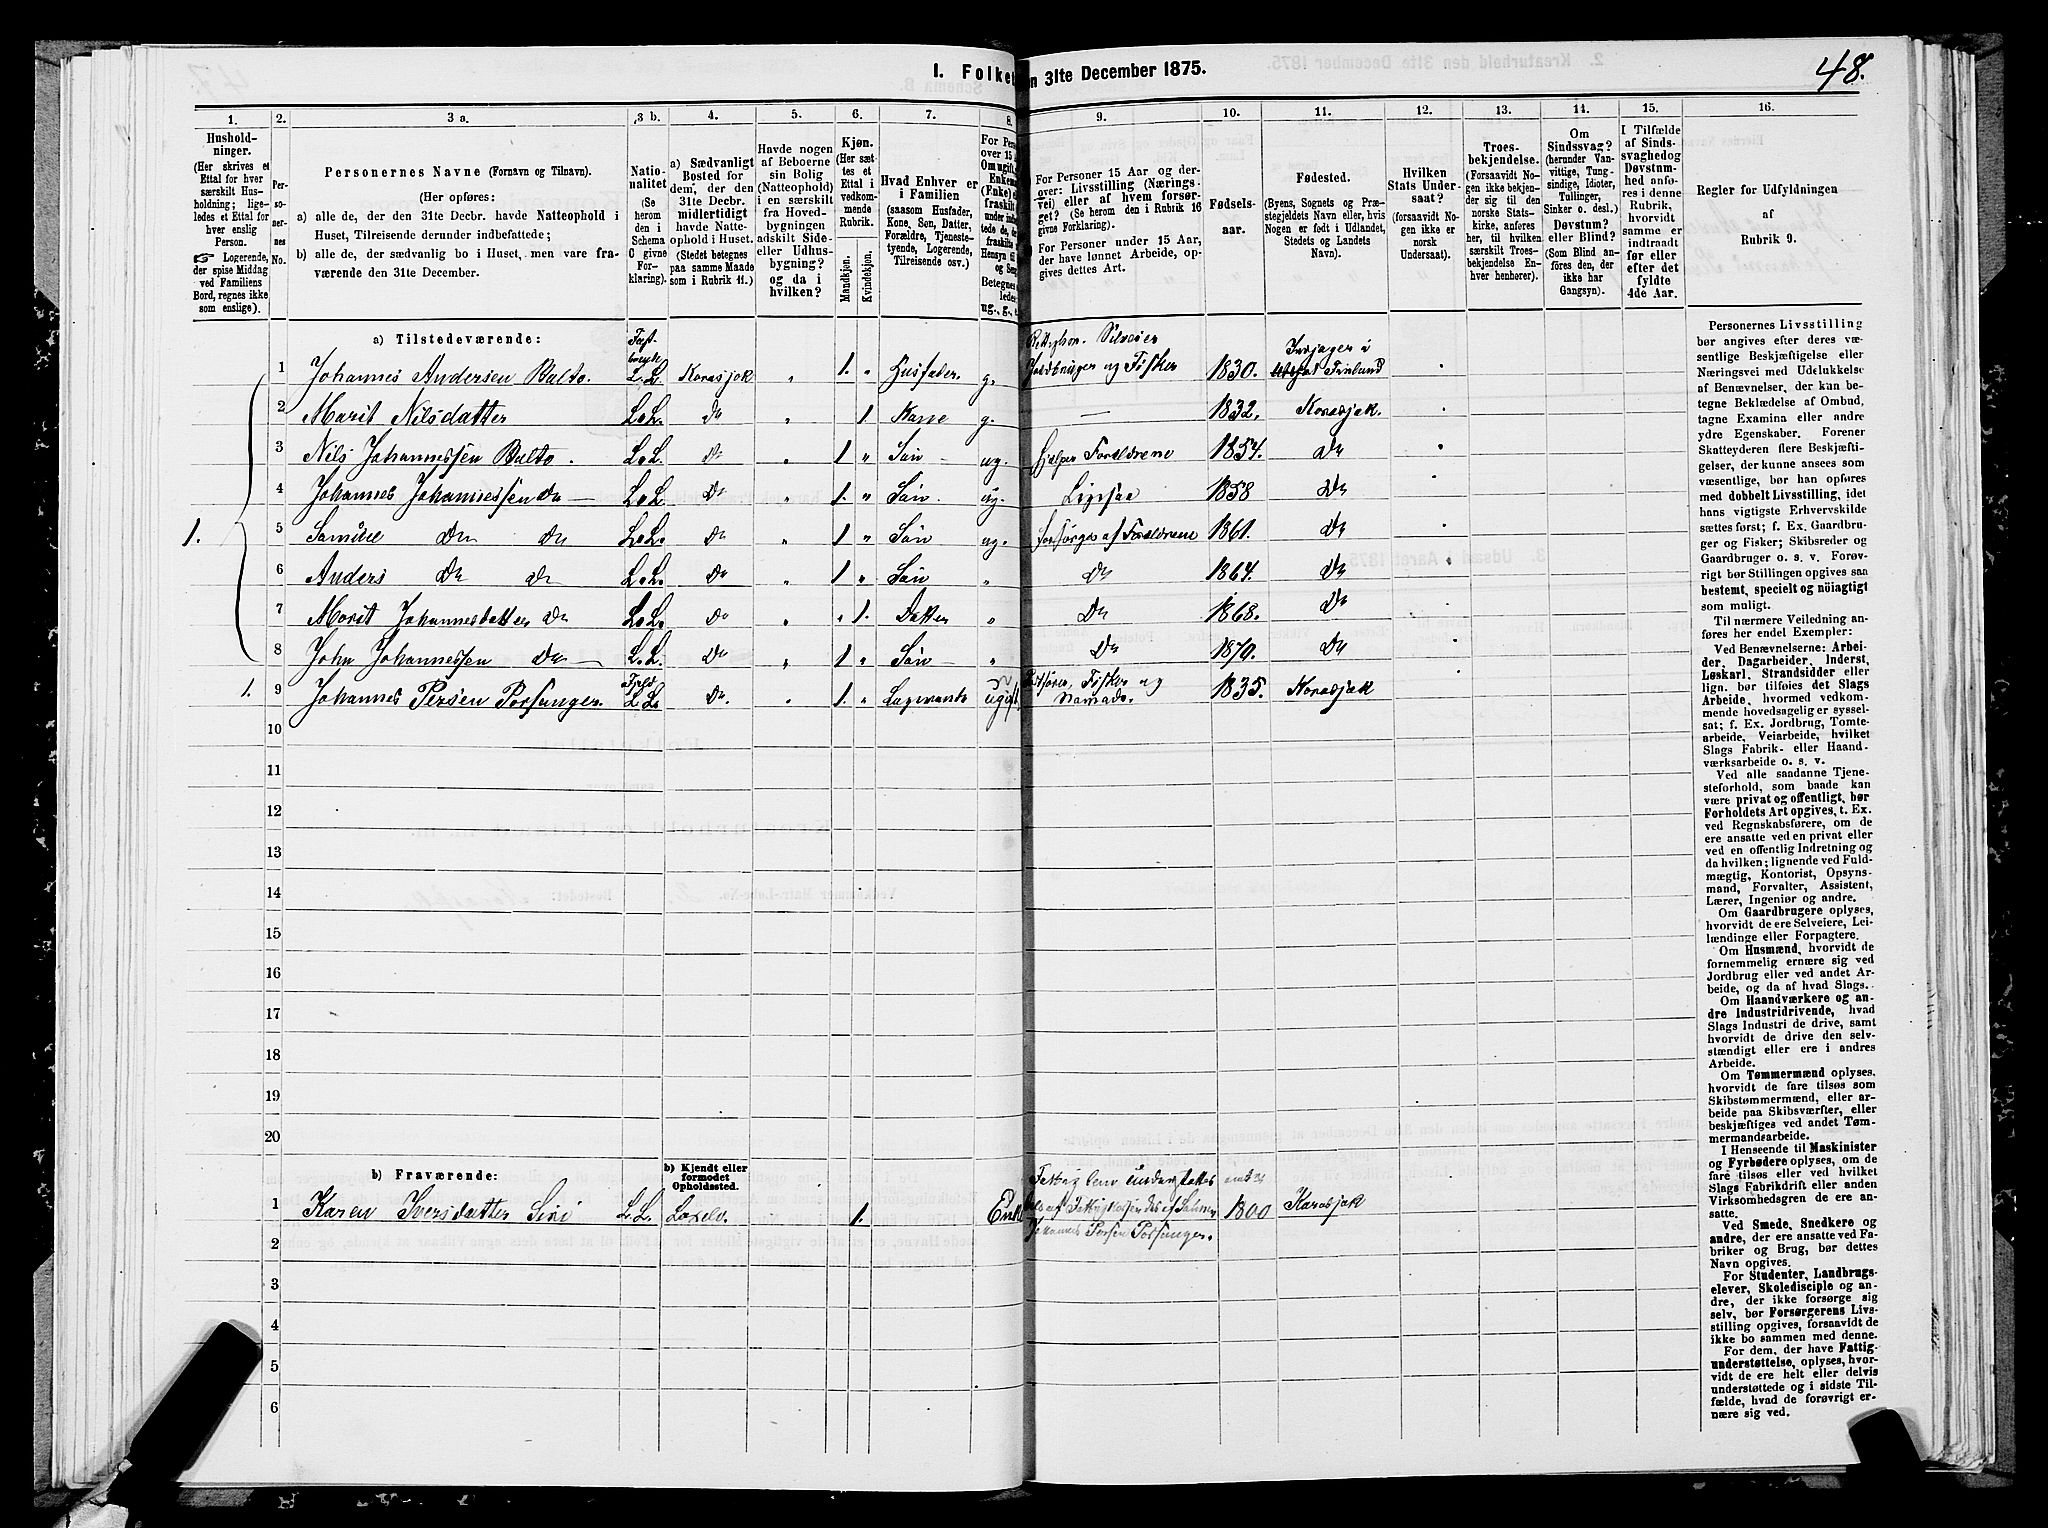 48.
I. Folket
n 31te December 1875.
1. 2. 3 a. 3 b. 4. 5. 6. 7. 8. 9. 10. 11. 12. 13. 14. 15. 16.
Hushold-
ninger.
(Her skrives et
Ettal for hver
særskilt Hus-
holdning; lige-
ledes et Ettal for
hver enslig
Person.
☞ Logerende,
der spise Middag
ved Familiens
Bord, regnes ikke
som enslige).
Per-
so-
ner-
nes
No.
Personernes Navne (Fornavn og Tilnavn).
(Her opføres:
a) alle de, der den 31te Decbr. havde Natteophold i
Huset, Tilreisende derunder indbefattede;
b) alle de, der sædvanlig bo i Huset, men vare fra-
værende den 31te December.
Natio-
nalitet
(Se
herom
den i
Schema
C givne
For-
klaring).
a) Sædvanligt
Bosted for
dem, der den
31te Decbr.
midlertidigt
havde Natte-
ophold i Huset.
(Stedet betegnes
paa samme Maade
som i Rubrik 11.)
Havde nogen
af Beboerne
sin Bolig
(Natteophold)
i en særskilt
fra Hoved-
bygningen
adskilt Side-
eller Udhus-
bygning?
og da i
hvilken?
Kjøn.
(Her sæt-
tes et
Ettal i
vedkom-
mende
Rubrik.
Mandkjøn.
Kvindekjøn.
Hvad Enhver er
i Familien
(saasom Husfader,
Kone, Søn, Datter,
Forældre, Tjeneste-
tyende, Logerende,
Tilreisende osv.)
For Personer 15 Aar og der-
over: Livsstilling (Nærings-
vei) eller af hvem forsør-
get? (Se herom den i Rubrik 16
givne Forklaring).
For Personer under 15 Aar,
der have lønnet Arbeide, op-
gives dettes Art.
Fødsels-
aar.
Fødested.
(Byens, Sognets og Præ-
stegjeldets Navn eller, hvis
Nogen er født i Udlandet,
Stedets og Landets
Navn).
Hvilken
Stats Under-
saat?
(forsaavidt No-
gen ikke er
norsk
Undersaat).
Troes-
bekjendelse.
(Forsaavidt No-
gen ikke bekjen-
der sig til den
norske Stats-
kirke, anfø-
res her, til hvilken
særskilt Troes-
bekjendelse En-
hver henhører).
Om
Sindssvag?
(herunder Van-
vittige, Tung-
sindige, Idioter,
Tullinger,
Sinker o. desl.)
Døvstum?
eller Blind?
(Som Blind an-
føres den, der
ikke har
Gangsyn).
I Tilfælde
af Sinds-
svaghed og
Døvstum-
hed anfø-
res i denne
Rubrik,
hvorvidt
samme er
indtraadt
før eller
efter det
fyldte
4de Aar.
Regler for Udfyldningen
af
Rubrik 9.
a) Tilstedeværende:
1 Johannes Andersen Balto. L.L. Karasjok " 1. " Husfader g. Jordbruger og Fisker 1830. Finland
2 Marit Nilsdatter L.L. Do " 1 Kone g. — 1832. Karasjok.
3 Nils Johannessen Balto. L.L. Do " 1 " Søn ug. Hjelper Forældrene 1854. Do
4 Johannes Johannessen Do L.L. Do " 1. " Søn ug. Ligesaa 1858 Do
1. 5 Samuel Do Do L.L. Do " 1 " Søn ug. forsørges af Forældrene 1861. Do
6 Anders Do Do L.L. Do " 1 " Søn " Do 1864. Do
7 Marit Johannesdatter Do L.L. Do " " 1. Datter " Do 1868. Do
8 John Johannessen Do L.L. Do " 1 " Søn " Do 1870. Do
1. 9 Johannes Persen Porsanger. Fjeld L.L. Do. " 1. " ugift Fisker og 1835. Karasjok
10
11
12
13
14
15
16
17
18
19
20
b) Fraværende:
b) Kjendt eller
formodet
Opholdssted.
1 Karen Iversdatter Siri L.L. Laxelv. 1. Enke 1800 Karasjok
Johannes Persen Porsanger.
2
3
4
5
6
Personernes Livsstilling
bør angives efter deres væ-
sentlige Beskjæftigelse eller
Næringsvei med Udelukkelse
af Benævnelser, der kun be-
tegne Beklædelse af Ombud,
tagne Examina eller andre
ydre Egenskaber. Forener
Skatteyderen flere Beskjæfti-
gelser, der kunne ansees som
væsentlige, bør han opføres
med dobbelt Livsstilling, idet
hans vigtigste Erhvervskilde
sættes først; f. Ex. Gaardbru-
ger og Fisker; Skibsreder og
Gaardbruger o. s. v. Forøv-
rigt bør Stillingen opgives saa
bestemt, specielt og nøiagtigt
som muligt.
Til nærmere Veiledning an-
føres her endel Exempler:
Ved Benævnelserne: Arbei-
der, Dagarbeider, Inderst,
Løskarl, Strandsidder eller
lign. bør tilføies det Slags
Arbeide, hvormed vedkom-
mende hovedsagelig er syssel-
sat; f. Ex. Jordbrug, Tomte-
arbeide, Veiarbeide, hvilket
Slags Fabrik- eller Haand-
værksarbeide o. s. v.
Ved alle saadanne Tjene-
steforhold, som baade kan
være privat og offentligt, bør
Forholdets Art opgives, t. Ex.
ved Regnskabsførere, om de
ere ansatte ved en privat eller
ved en offentlig Indretning og
da hvilken; lignende ved Fuld-
mægtig, Kontorist, Opsyns-
mand, Forvalter, Assistent,
Lærer, Ingeniør og andre.
Om Gaardbrugere oplyses,
hvorvidt de ere Selveiere, Lei-
lændinge eller Forpagtere.
Om Husmænd, hvorvidt de
fornemmelig ernære sig ved
Jordbrug eller ved andet Ar-
beide, og da af hvad Slags.
Om Haandværkere og an-
dre Industridrivende, hvad
Slags Industri de drive, samt
hvorvidt de drive den selv-
stændigt eller ere i andres
Arbeide.
Om Tømmermænd oplyses,
hvorvidt de fare tilsøs som
Skibstømmermænd, eller ar-
beide paa Skibsværfter, eller
beskjæftiges ved andet Tøm-
mermandsarbeide.
I Henseende til Maskinister
og Fyrbødere oplyses, om de
fare tilsøs eller ved hvilket
Slags Fabrikdrift eller anden
Virksomhedsgren de ere an-
satte.
Ved Smede, Snedkere og
andre, der ere ansatte ved Fa-
briker og Brug, bør dettes
Navn opgives.
For Studenter, Landbrugs-
elever, Skoledisciple og an-
dre, der ikke forsørge sig
selv, bør Forsørgerens Livs-
stilling opgives, forsaavidt de
ikke bo sammen med denne.
For dem, der have Fattig-
understøttelse, oplyses, hvor-
vidt de ere helt eller delvis
understøttede og i sidste Til-
fælde, hvad de forøvrigt er-
nære sig ved.